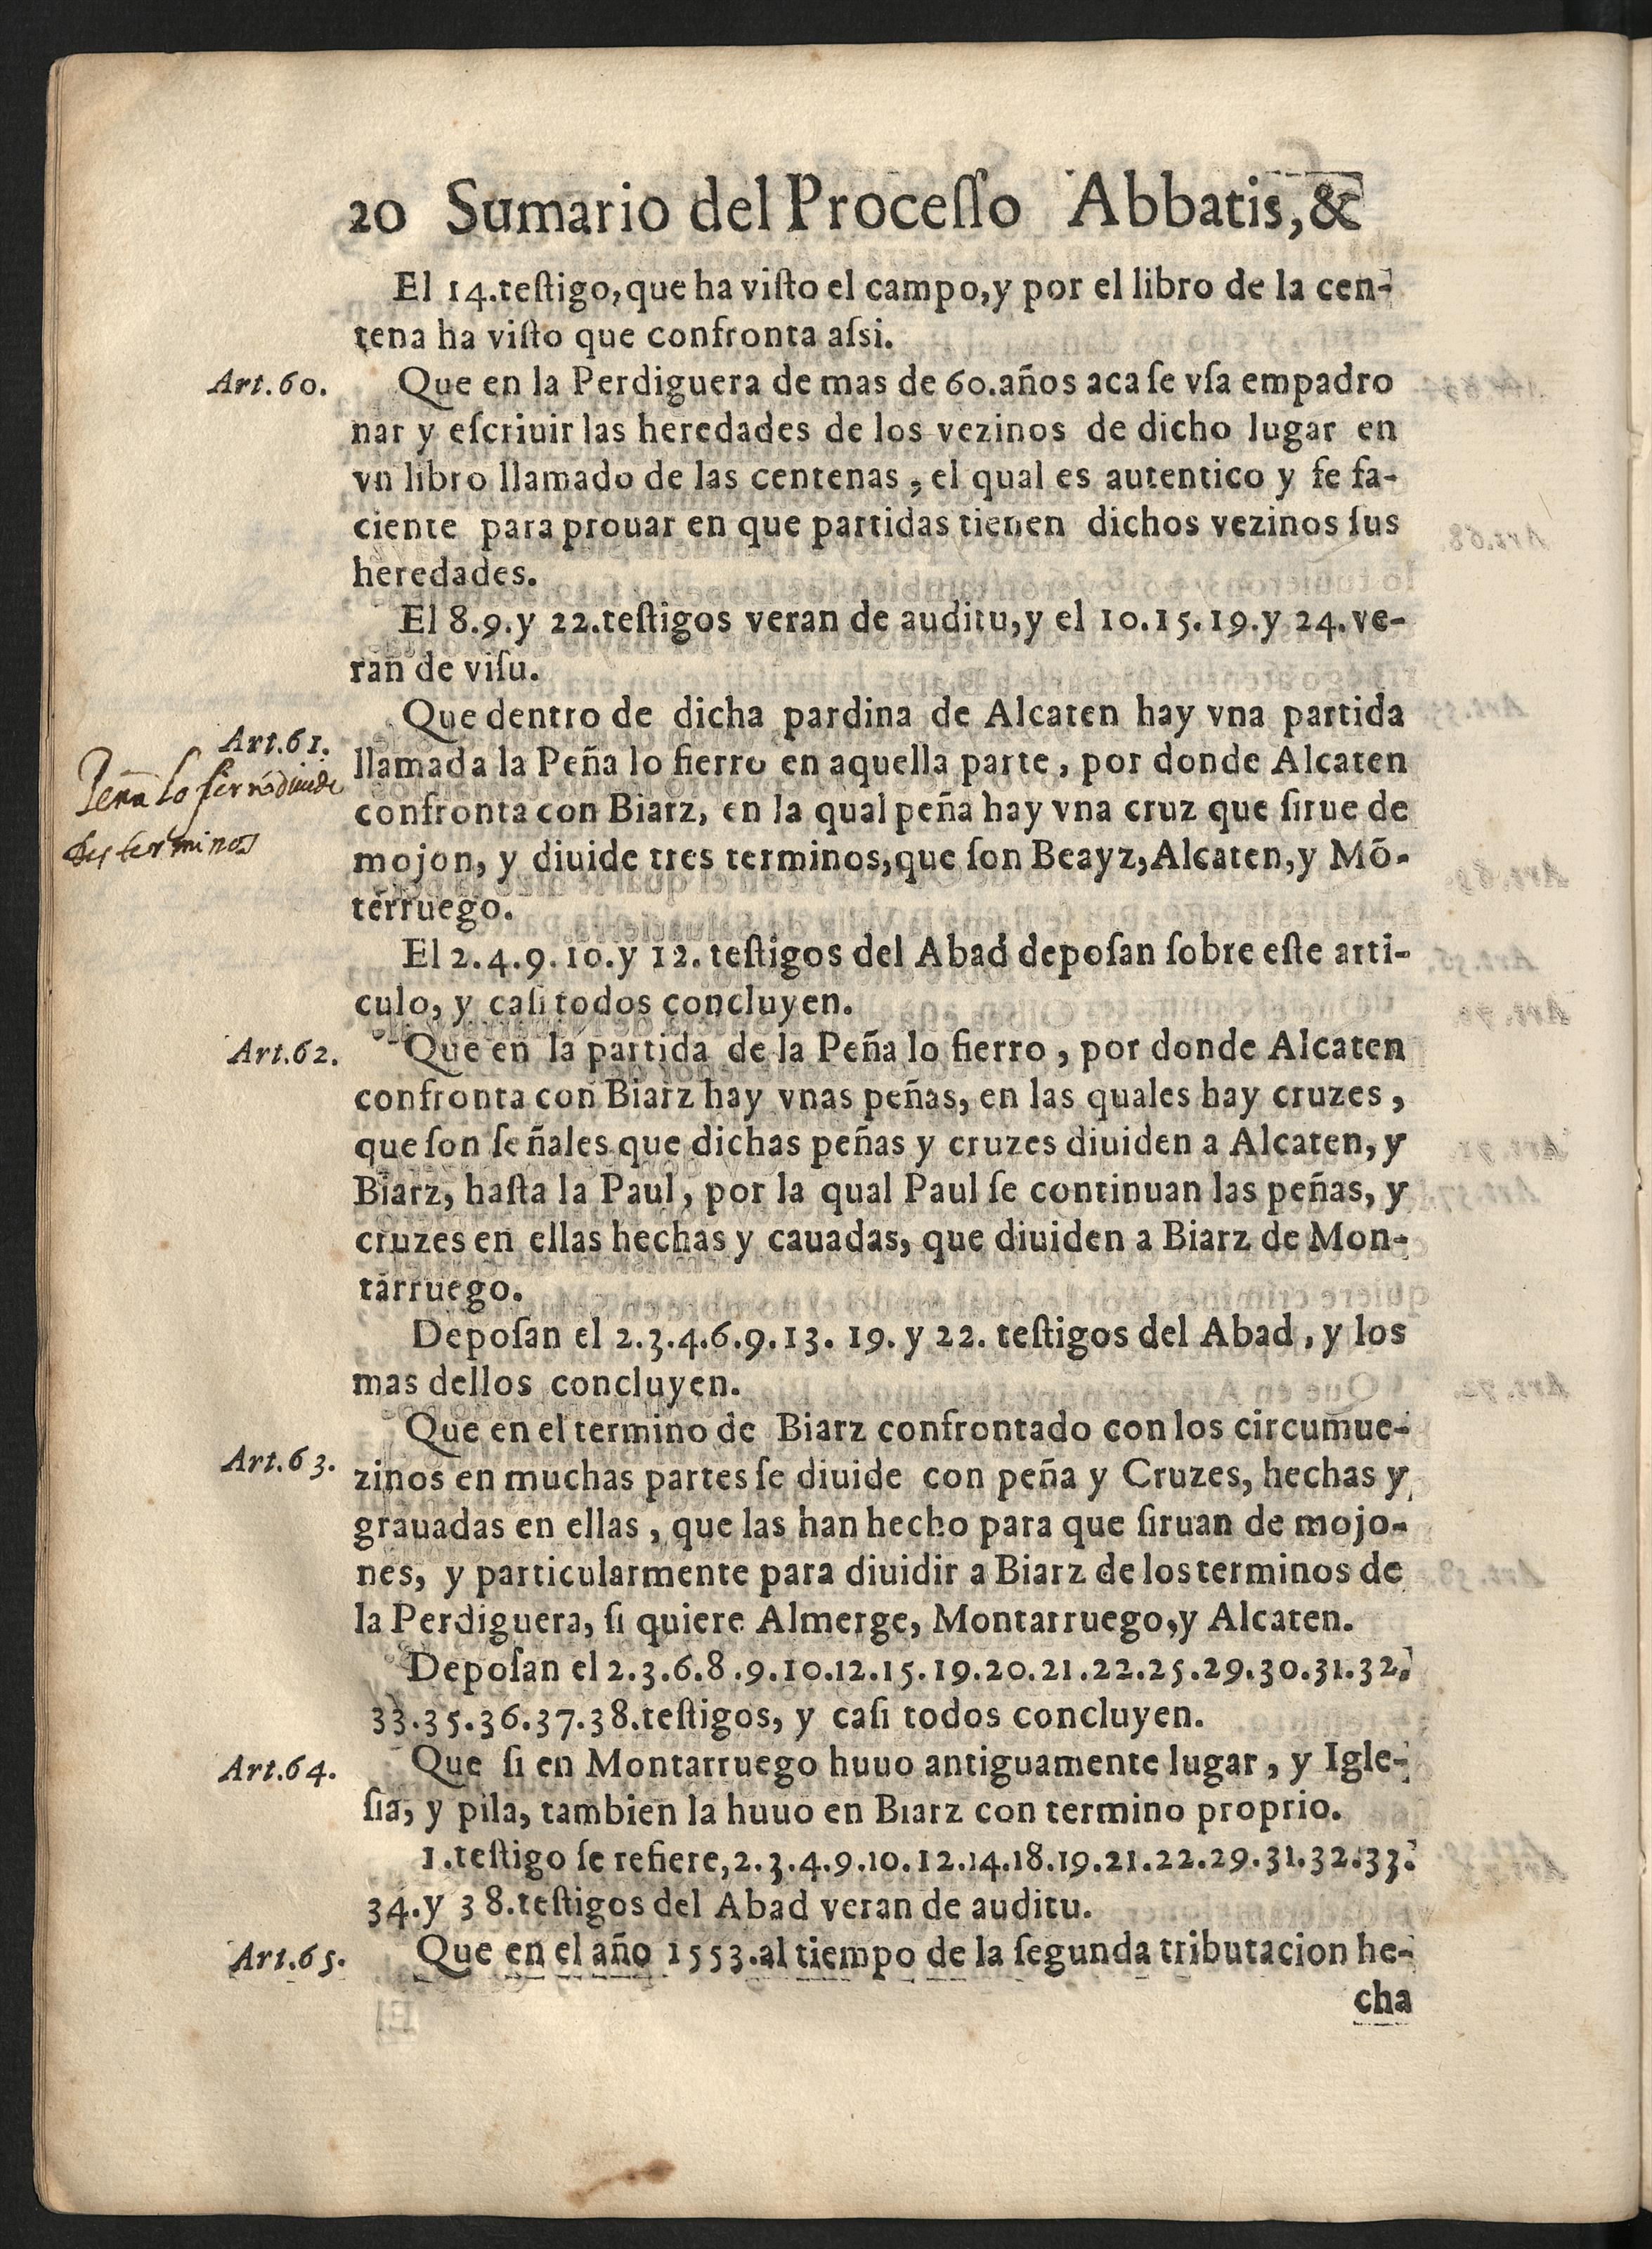 20 Sumario del Proceſſo Abbatis,&
El 14.teſtigo,que ha viſto el campo,y por el libro de la cen-
tena ha viſto que confronta aſsi.
Art.60. Que en la Perdiguera de mas de 60.años aca ſe vſa empadro
nar y eſcriuir las heredades de los vezinos de dicho lugar en
vn libro llamado de las centenas, el qual es autentico y fe fa-
ciente para prouar en que partidas tienen dichos vezinos ſus
heredades.
El 8.9.y 22.teſtigos veran de auditu,y el 10.15.19.y 24.ve-
ran de viſu.
Que dentro de dicha pardina de Alcaten hay vna partida
Art.61.
llamada la Peña lo fierro en aquella parte, por donde Alcaten
Peña lo fierro diuide
confronta con Biarz, en la qual peña hay vna cruz que ſirue de
tres terminos
mojon, y diuide tres terminos,que ſon Beayz,Alcaten,y Mõ-
terruego.
El 2.4.9.10.y 12. teſtigos del Abad depoſan ſobre eſte arti-
culo, y caſi todos concluyen.
Art.62. Que en la partida de la Peña lo fierro, por donde Alcaten
confronta con Biarz hay vnas peñas, en las quales hay cruzes,
que ſon ſeñales que dichas peñas y cruzes diuiden a Alcaten, y
Biarz, haſta la Paul, por la qual Paul ſe continuan las peñas, y
cruzes en ellas hechas y cauadas, que diuiden a Biarz de Mon-
tarruego.
Depoſan el 2.3.4.6.9.13. 19. y 22. teſtigos del Abad, y los
mas dellos concluyen.
Que en el termino de Biarz confrontado con los circumue-
Art.63.
zinos en muchas partes ſe diuide con peña y Cruzes, hechas y
grauadas en ellas, que las han hecho para que ſiruan de mojo-
nes, y particularmente para diuidir a Biarz de los terminos de
la Perdiguera, ſi quiere Almerge, Montarruego,y Alcaten.
Depoſan el 2.3.6.8.9.10.12.15.19.20.21.22.25.29.30.31.32.
33.35.36.37.38.teſtigos, y caſi todos concluyen.
Art.64. Que ſi en Montarruego huuo antiguamente lugar, y Igle-
ſia, y pila, tambien la huuo en Biarz con termino proprio.
1.teſtigo ſe refiere,2.3.4.9.10.12.14.18.19.21.22.29.31.32.33.
34.y 38.teſtigos del Abad veran de auditu.
Art.65. Que en el año 1553.al tiempo de la ſegunda tributacion he-
cha